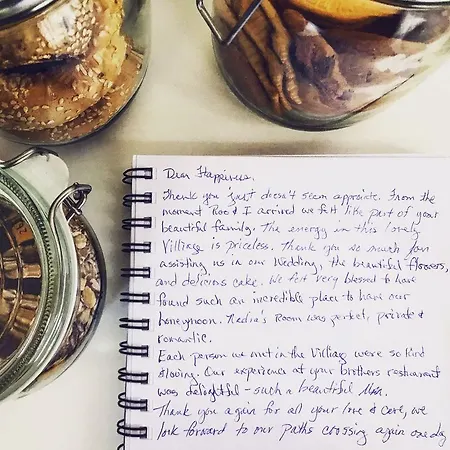 Dear Happiness,
Thank you just doesn't seem appreciate. From the
moment Roo & I arrived we felt like part of your
beautiful family. The energy in this lovely
Village is priceless. Thank you so much for
assisting us in our Wedding, the beautiful flowers,
and delicious cake. We felt very blessed to have
found such an incredible place to have our
honeymoon. Room was perfect, private &
romantic.
Each person we met in the Village were so kind
& loving. Our experience at your brothers restaurant
was delightful - such a beautiful Man.
Thank you again for all your love & care, we
look forward to our paths crossing again one day